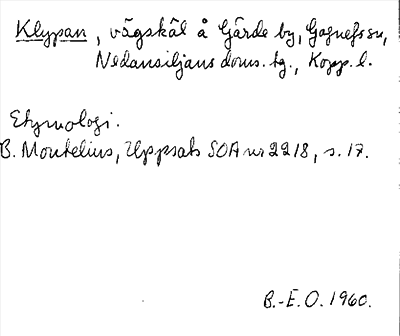 Klypan, vägskäl å Gärde by, Gagnefs sn,
Nedansiljans doms. tg., Kopp. l.
Etymologi.
B. Montelius, Uppsats SOA nr 2218, s. 17.
B.-E. O. 1960.